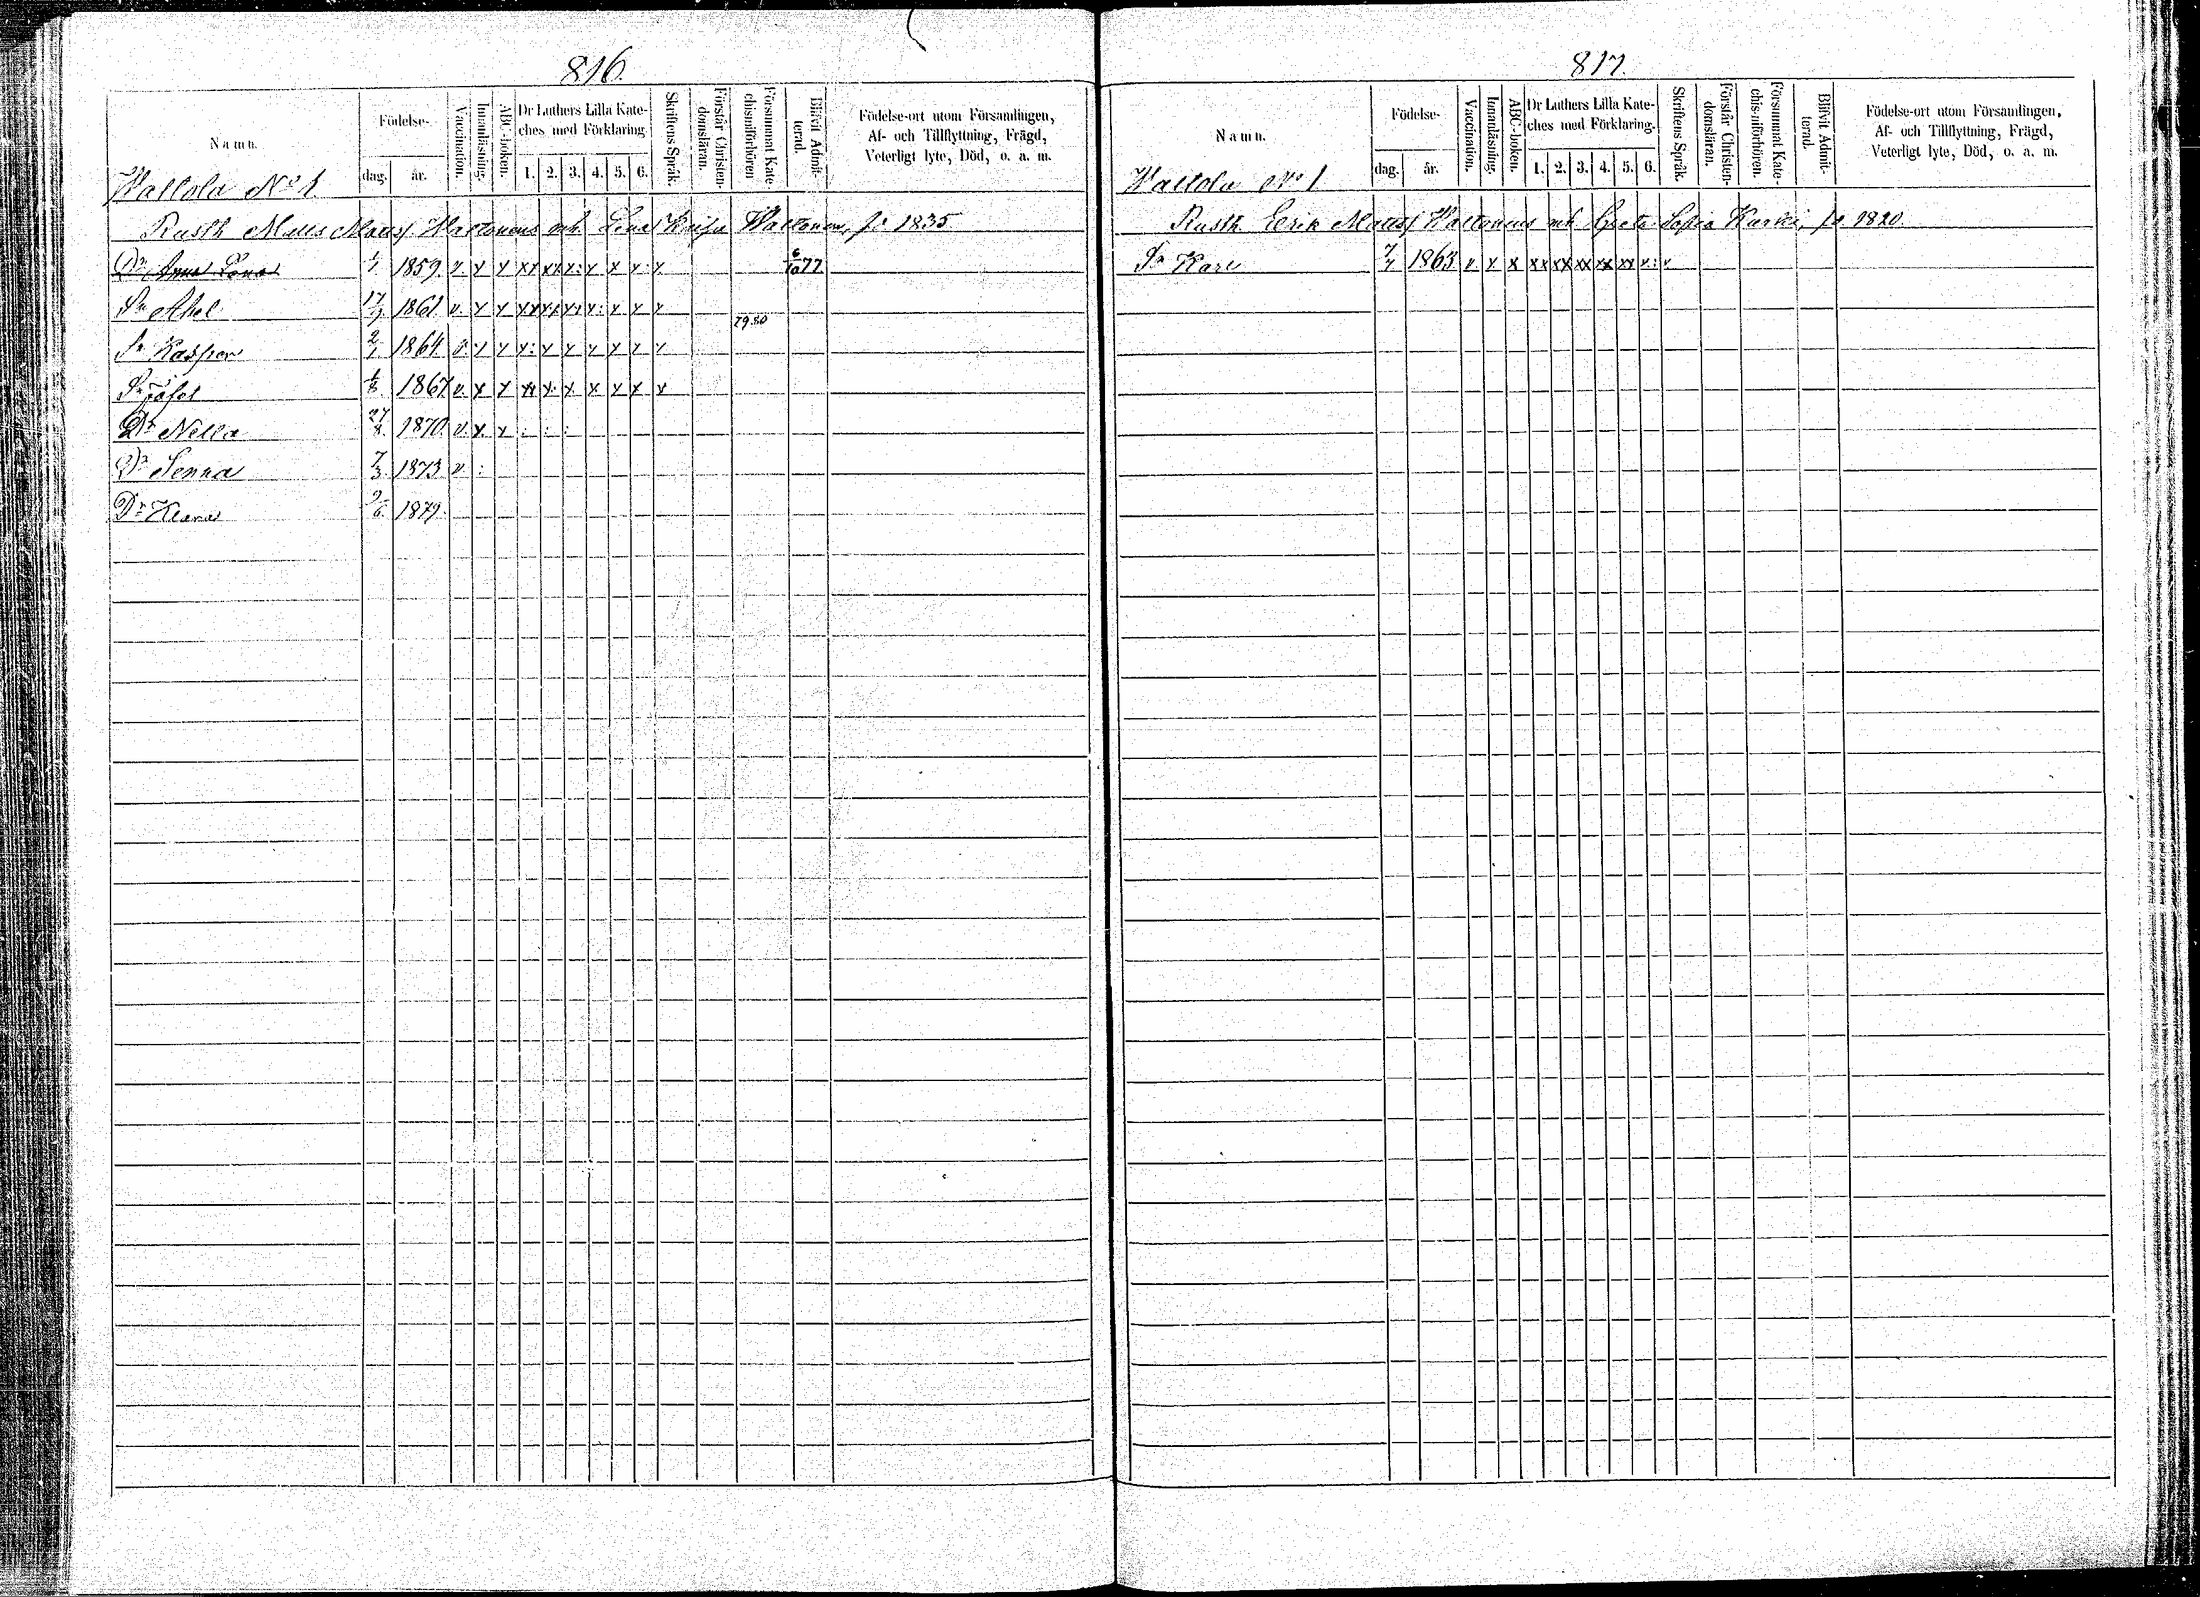 816.
Namn.
Födelse-
dag.
år.
Vaccination.
Innanläsning.
ABC-boken.
Dr Luthers Lilla Kate-
ches med Förklaring
1. 2. 3. 4. 5. 6.
Skriftens Språk.
Förstår Christen-
domsläran.
Försummat Kate-
chismiförhören
Blifvit Admit-
terad.
Födelse-ort utom Församlingen,
Af- och Tillflyttning, Frägd,
Veterligt lyte, Död, o. a. m.
Wallola No 1.
Rusth Matts Mattss Waltonens och Lena Waltonen, fo 1835
Dr Anna Lena 1/1 1859. v. x x xx xx x: x x x: x 6/10 77
Sn Abel 17/9 1861 v. x x xx xx x: x: x x x
79.80
Sn Kasper 2/1 1864 v. x x x: x x x x x x
Sn Jofel 1/8 1867. v. x x xx x: x x x x x
Dr Nella 27/8 1870. v. x. x : : :
Dr Senna 7/3 1873. v. :
Dr Klara 9/6 1879.
817.
Namn.
Födelse-
dag.
år.
Vaccination.
Innanläsning.
ABC-boken.
Dr Luthers Lilla Kate-
ches med Förklaring.
1. 2. 3. 4. 5. 6.
Skriftens Språk.
Förstår Christen-
domsläran.
Försummat Kate-
chis-niförhören.
Blifvit Admit-
terad.
Födelse-ort utom Församlingen,
Af- och Tillflyttning, Frägd,
Veterligt lyte, Död, o. a. m.
Wallola No 1
Rusth Erik Mattss Waltonens och Greta Sofia Karki, fo. 1820.
Sn Karl 7/7 1863 v. x x xx xx xx xx xx x: v